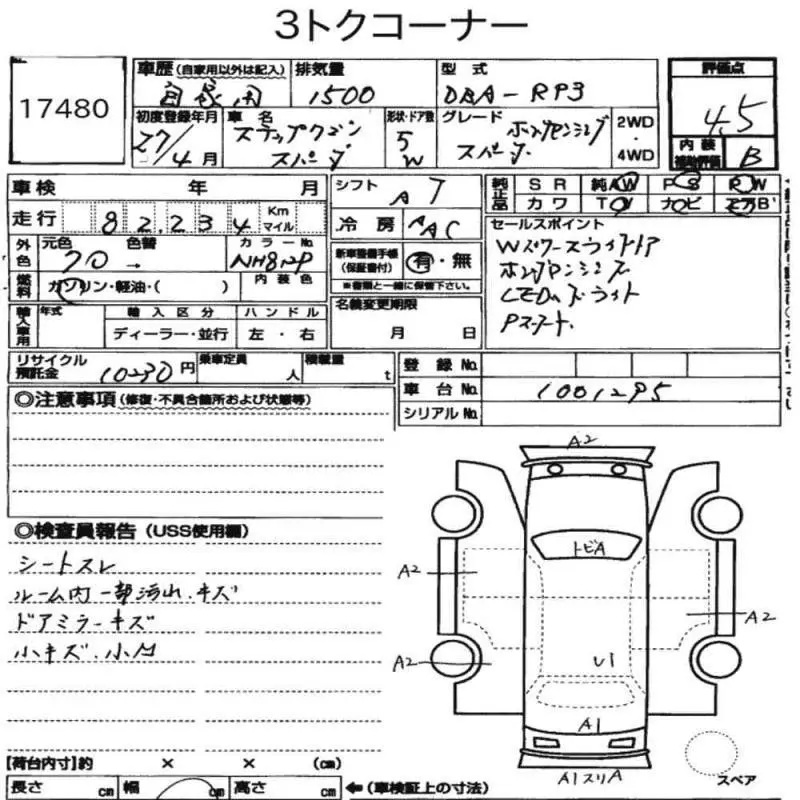 3トクコーナー
17480
車歴 (自家用以外は記入) 自家用
排気量 1500
型式 DBA-RP3
評価点 4.5
初度登録年月 27年/4月
車名 ステップワゴン スパーダ
形状・ドア数 5 W
グレード ホンダセンシング スパーダ
2WD・4WD
内装補助評価 B
車検 年 月
シフト AT
純正品 SR 純AW PS RW
カワ TV ナビ エアB
走行 82,234 Km マイル
冷房 AAC
セールスポイント
Wパワースライドドア
ホンダセンシング
LEDヘッドライト
Pスタート
外色 元色 クロ 色替 → カラーNo. NH812P
新車整備手帳(保証書付) 有・無
※書類と一緒に保管下さい。
燃料 ガソリン・軽油・( ) 内装色
名義変更期限 月 日
輸入車用 年式 輸入区分 ディーラー・並行 ハンドル 左・右
リサイクル預託金 10230円
乗車定員 人
積載量 t
登録No.
車台No. 1001295
シリアルNo.
◎注意事項 (修復・不具合箇所および状態等)
◎検査員報告 (USS使用欄)
シートスレ
ルーム内一部汚れ.キズ
ドアミラーキズ
小キズ.小凹
A2
トビA
A2
A2
A2
U1
A1
A1スリA
スペア
[荷台内寸]約 × × (cm)
長さ cm 幅 cm 高さ cm ←(車検証上の寸法)